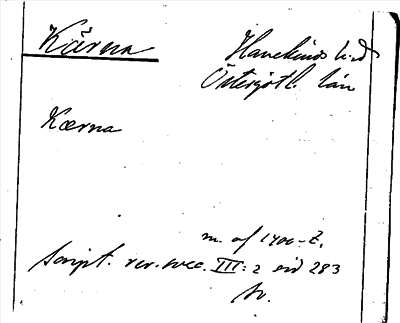 Kärna
Hanekinds h.d
Östergötl. län
Kærna
m. af 1400-t.
Script. rer. svec. III: 2 sid 283